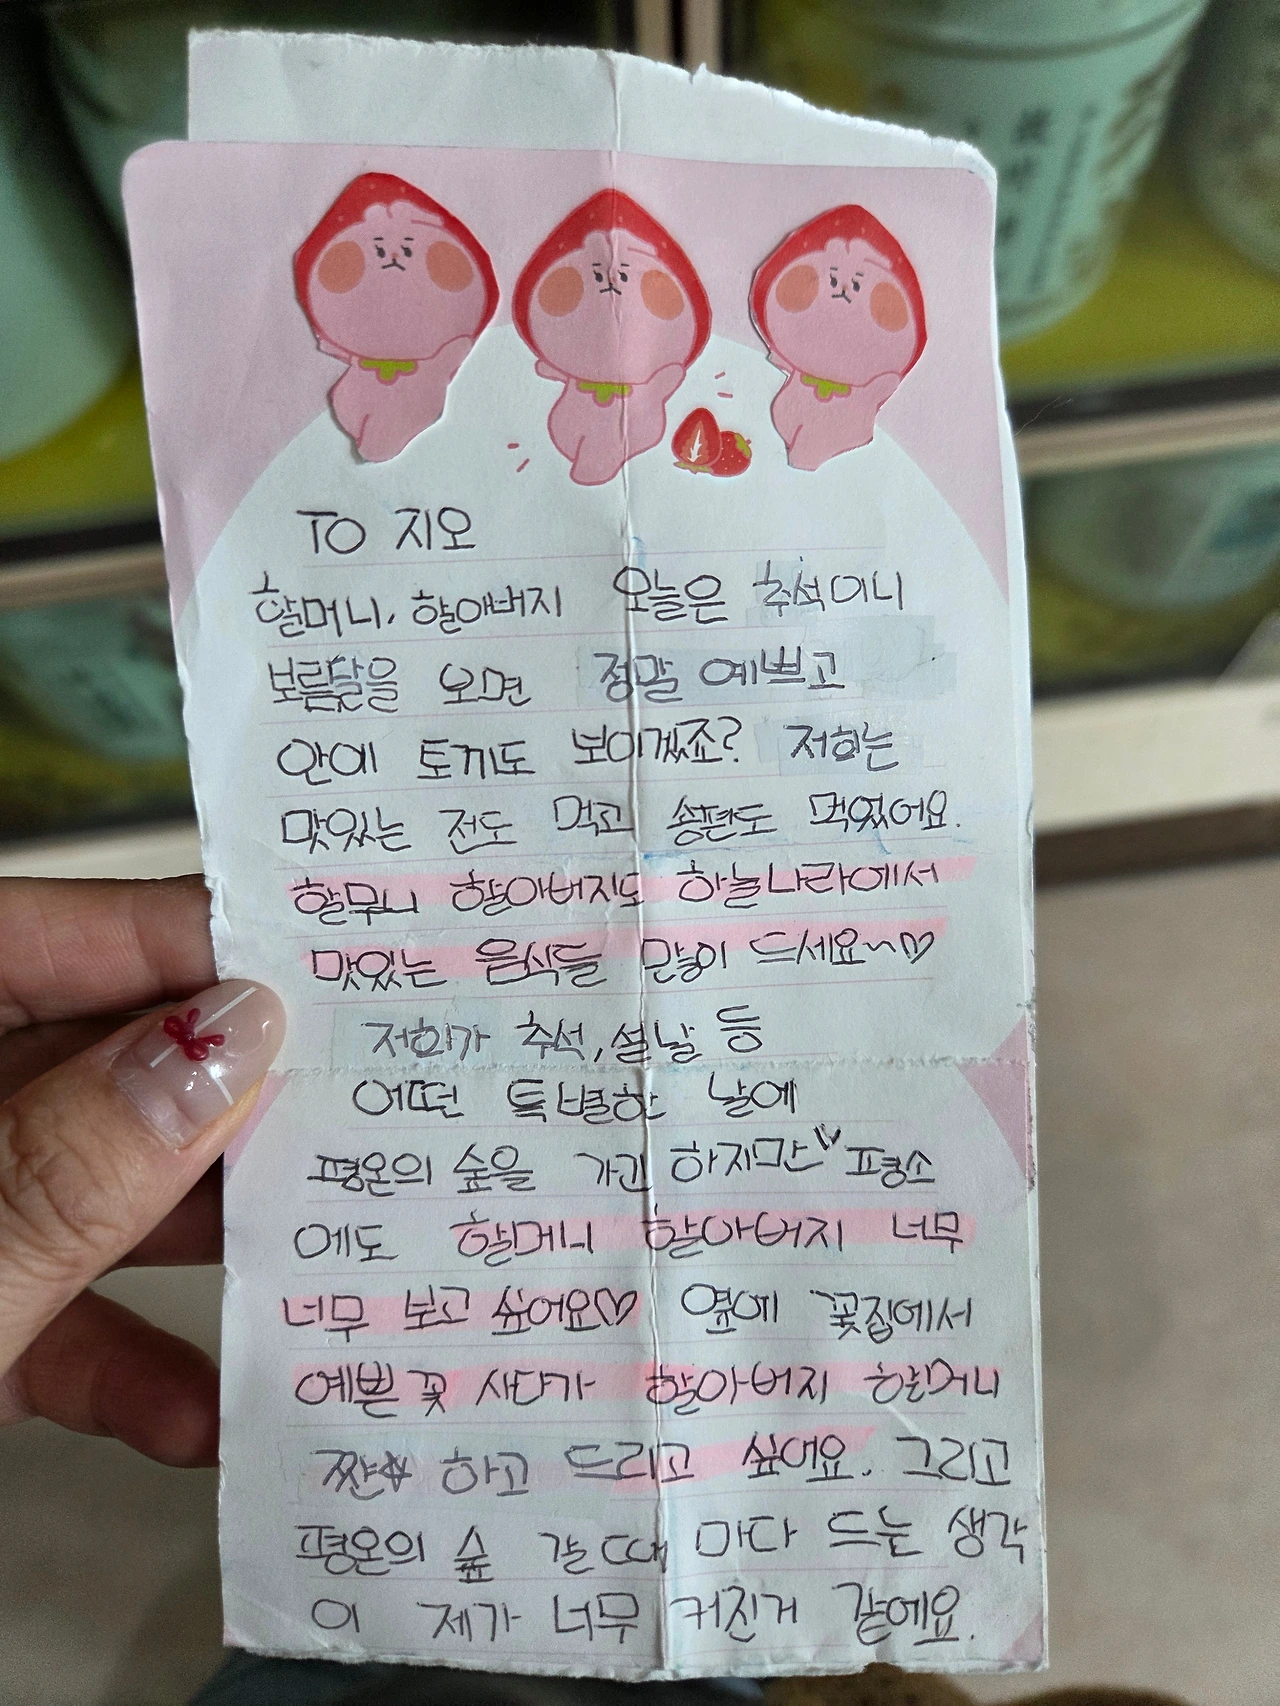 TO 지오
할머니, 할아버지 오늘은 추석이니
보름달을 오면 정말 예쁘고
안에 토끼도 보이겠죠? 저희는
맛있는 전도 먹고 송편도 먹었어요.
할무니 할아버지도 하늘나라에서
맛있는 음식들 많이 드세요~♡
저희가 추석, 설날 등
어떤 특별한 날에
평온의 숲을 가긴 하지만 평소
에도 할머니 할아버지 너무
너무 보고 싶어요♡ 옆에 꽃집에서
예쁜 꽃 사다가 할아버지 할머니
짠☆ 하고 드리고 싶어요. 그리고
평온의 숲 갈 때 마다 드는 생각
이 제가 너무 커진거 같에요.